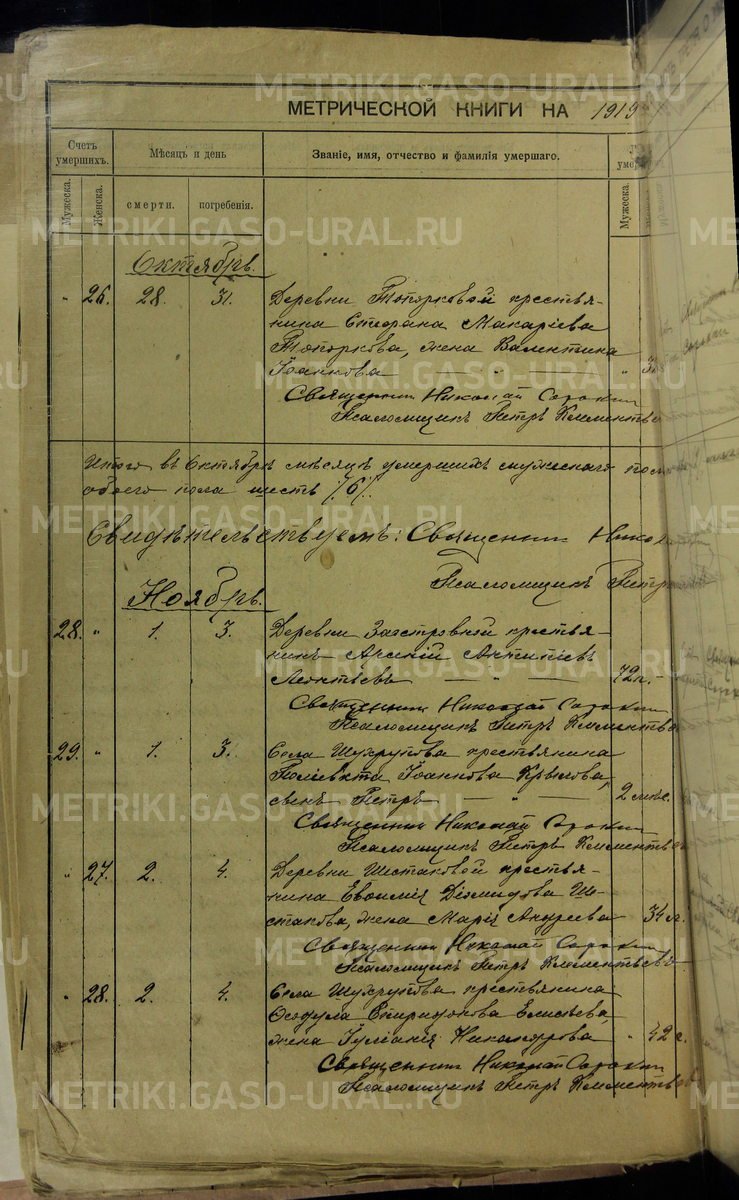 МЕТРИЧЕСКОЙ КНИГИ НА 1919
Счетъ умершихъ.
Мѣсяцъ и день
Званіе, имя, отчество и фамилія умершаго.
Мужеска.
Женска.
смерти.
погребенія.
Мужеска.
Октябрь.
" 26. 28. 31. Деревни Топорковой крестья-
нина Стефана Макаріева
Топоркова, жена Валентина
Іоаннова — " — "
Священник Николай Сорокин
Псаломщикъ Петръ Клементьев
Итого въ Октябрѣ мѣсяцѣ умершихъ мужескаго пола
обоего пола шесть /6/.
Свидѣтельствуемъ: Священник Никол
Псаломщикъ Петръ
Ноябрь.
28. " 1. 3. Деревни Заостровной крестья-
нинъ Арсеній Антипіевъ
Леонтьевъ — " — 72 л. -
Священник Николай Сорокин
Псаломщикъ Петръ Клементьев
29. " 1. 3. Села Шухрупова крестьянина
Поліевкта Іоаннова Крылова,
сынъ Петръ — " — 2 мѣс.
Священник Николай Сорокин
Псаломщикъ Петръ Клементьев
" 27. 2. 4. Деревни Шестаковой крестья-
нина Евфимія Діомидова Ше-
стакова, жена Марія Андреева 34 л.
Священник Николай Сорокин
Псаломщикъ Петръ Клементьевъ
" 28. 2. 4. Села Шухрупова крестьянина
Феодула Спиридонова Елисѣева,
жена Іуліанія Никанорова " 42 г.
Священник Николай Сорокин
Псаломщикъ Петръ Клементьевъ
METRIKI.GASO-URAL.RU